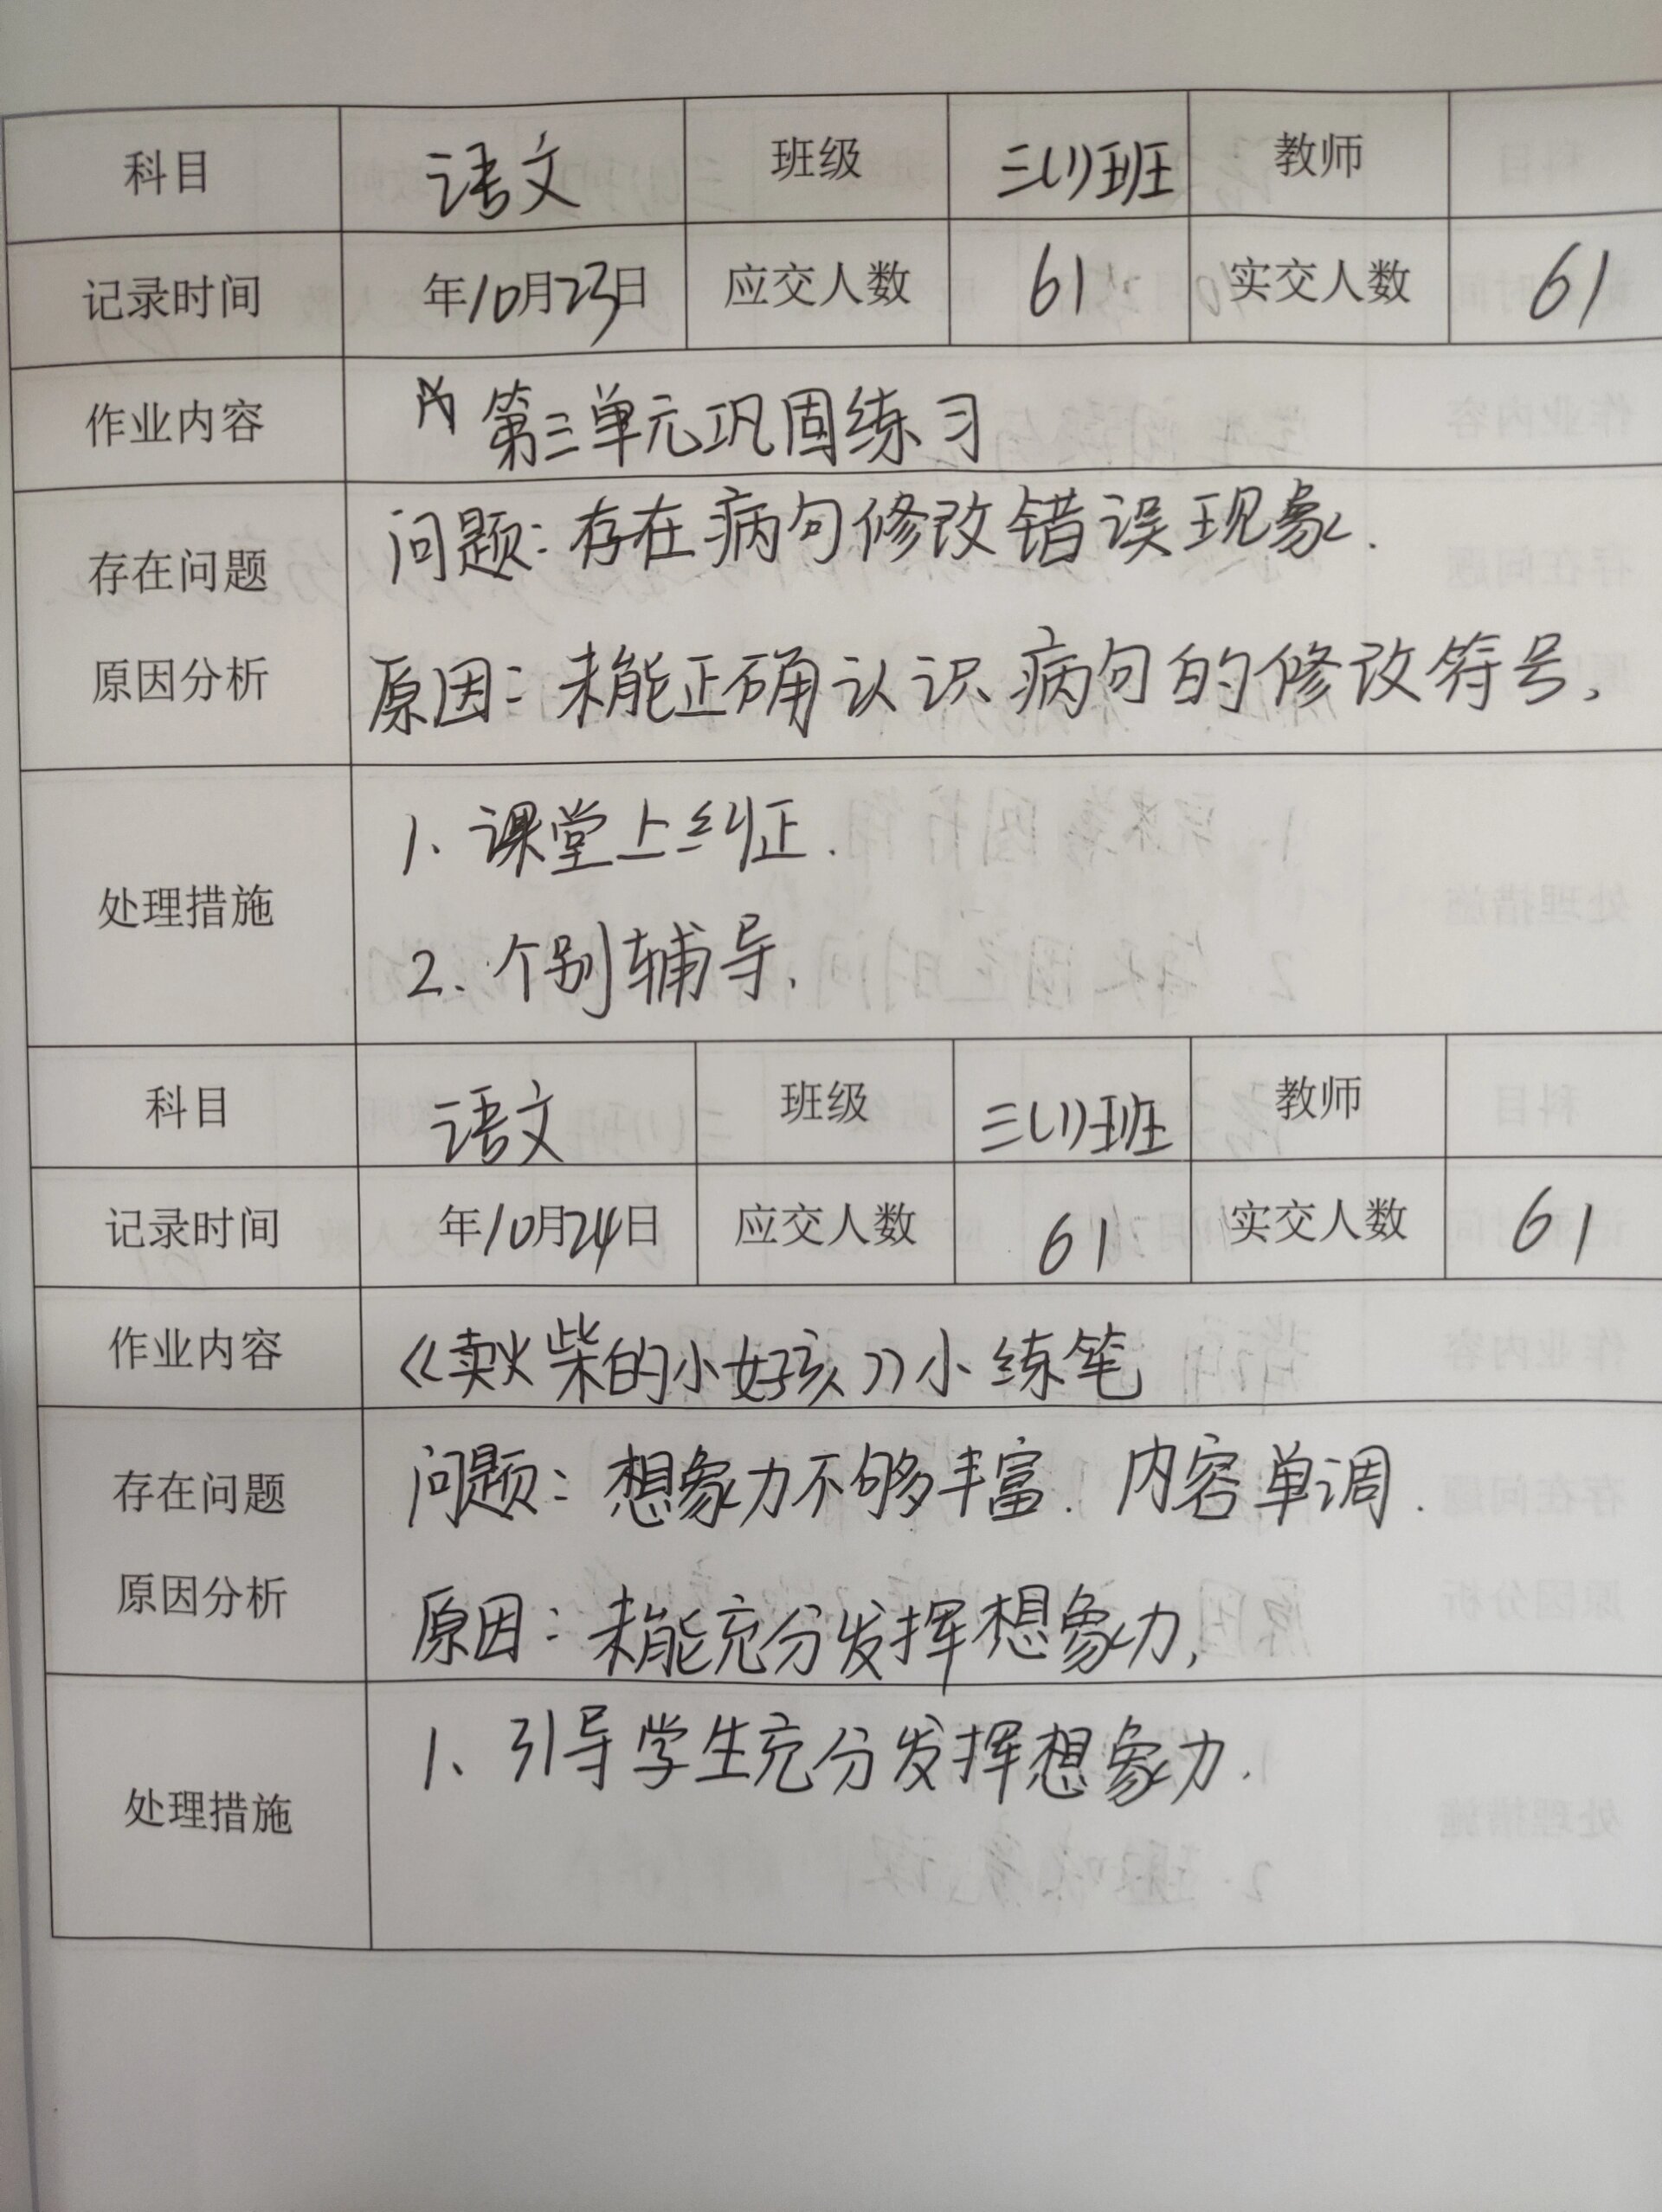 科目 语文 班级 三(1)班 教师
记录时间 年10月23日 应交人数 61 实交人数 61
作业内容 第三单元巩固练习
问题:存在病句修改错误现象.
存在问题
原因分析 原因:未能正确认识病句的修改符号、
1、课堂上纠正.
处理措施
2、个别辅导、
科目 语文 班级 三(1)班 教师
记录时间 年10月24日 应交人数 61 实交人数 61
作业内容 《卖火柴的小女孩》小练笔
存在问题 问题:想象力不够丰富.内容单调.
原因分析 原因:未能充分发挥想象力,
1、引导学生充分发挥想象力.
处理措施